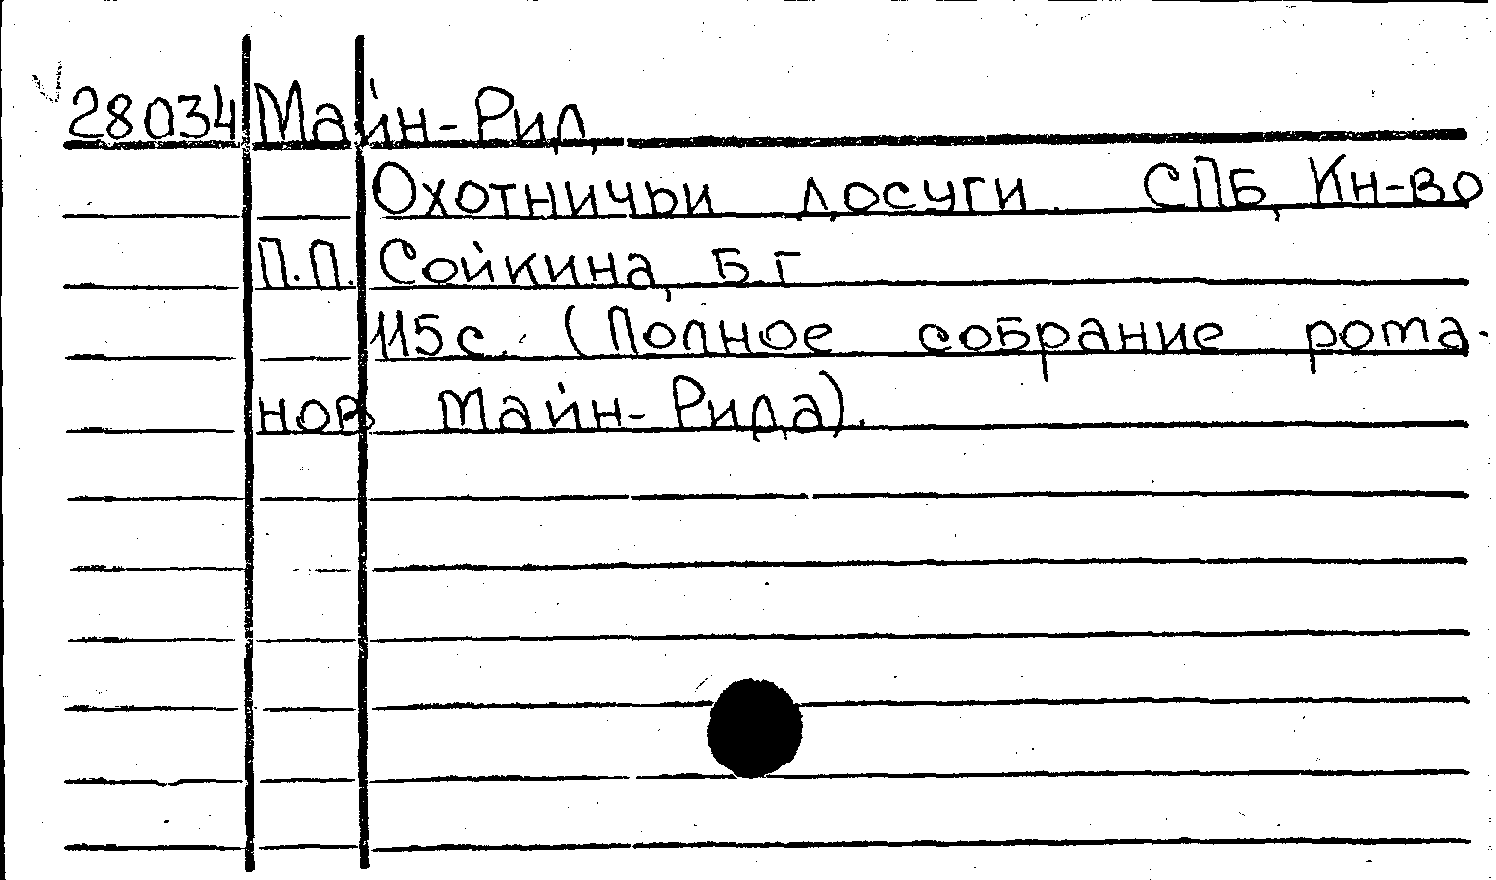 28034 Майн-Рид
Охотничьи досуги. СПБ, Кн-во
П.П. Сойкина, Б.г
115 с. (Полное собрание рома-
нов Майн-Рида).